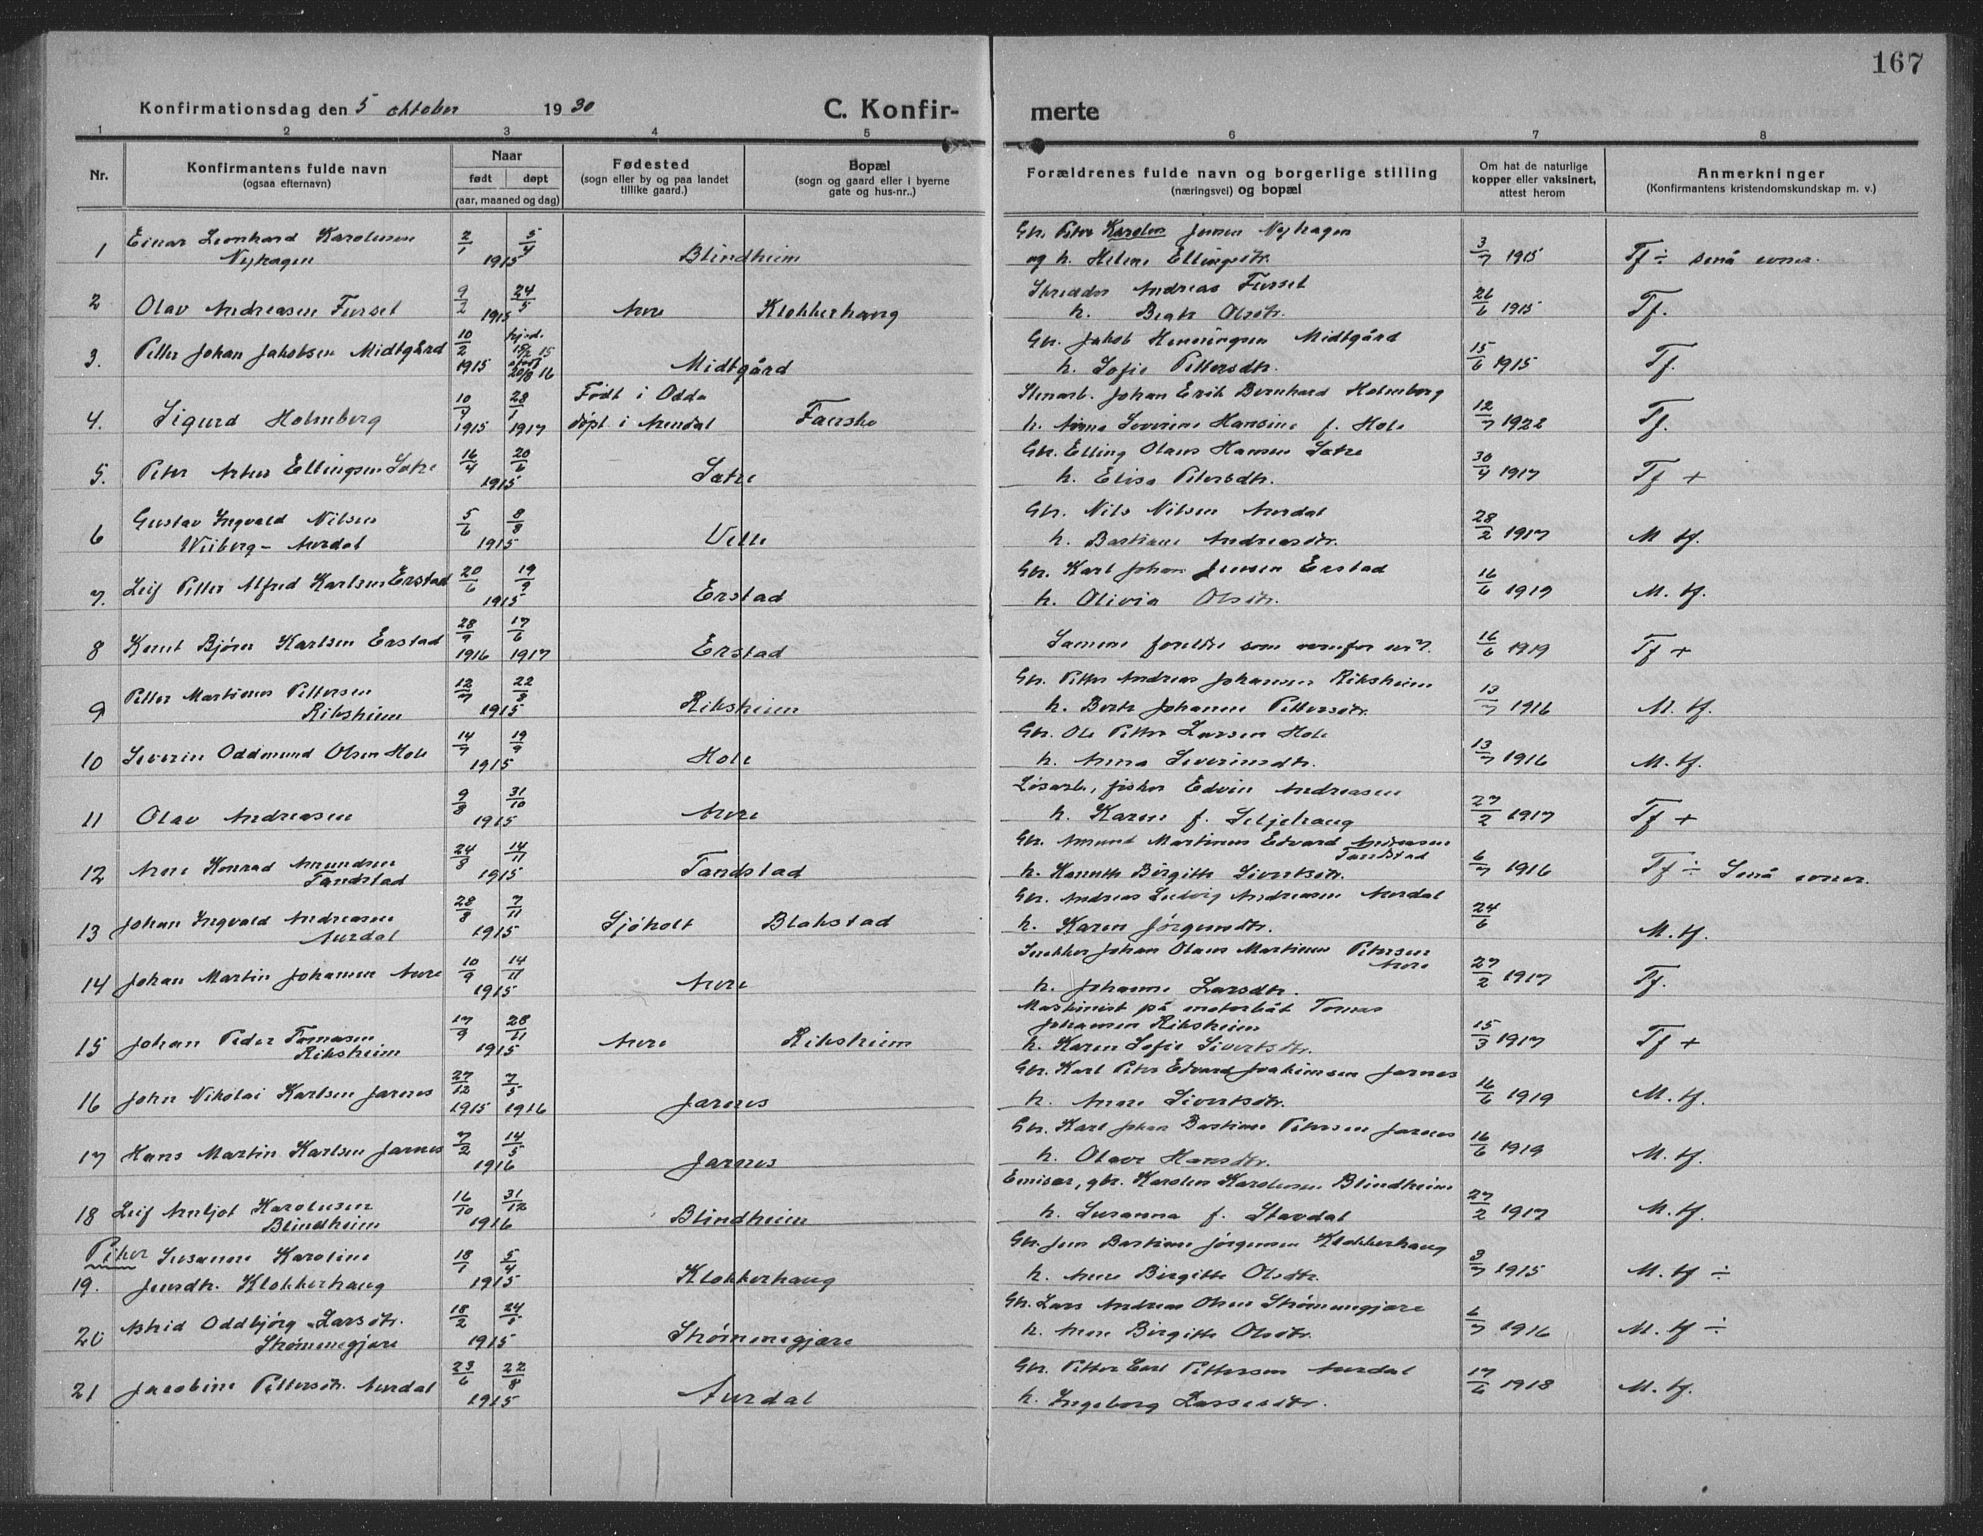 167
Konfirmationsdag den 5 oktober 1930 C. Konfirmerte
1 2 3 4 5 6 7 8
Nr. Konfirmantens fulde navn (ogsaa efternavn) Naar født døpt (aar, maaned og dag) Fødested (sogn eller by og paa landet tillike gaard.) Bopæl (sogn og gaard eller i byerne gate og hus-nr..) Forældrenes fulde navn og borgerlige stilling (næringsvei) og bopæl Om hat de naturlige kopper eller vaksinert, attest herom Anmerkninger (Konfirmantens kristendomskundskap m. v.)
1 Einar Leonhard Karolusen Nyhagen 2/1 5/4 1915 Blindheim Gbr. Peter Karolus Jensen Nyhagen og h. Helene Ellingsdtr. 3/7 1915 Tf ÷ små evner.
2 Olav Andreasen Furset 9/2 24/5 1915 Aure Klokkerhaug Skredder Andreas Furset h. Beate Olsdtr. 26/6 1915 Tf.
3. Petter Johan Jakobsen Midtgård 10/2 1915 hjd. 15 stadf. 20/8 16 Midtgård Gbr. Jakob Henningsen Midtgård h. Sofie Pettersdtr. 15/6 1915 Tf.
4. Sigurd Holmberg 10/4 1915 28/1 1917 Født i Odda døpt i Arendal Faersko Stenarb. Johan Erik Bernhard Holmberg h. Anna Severine Hansine f. Hole 12/7 1922 Tf.
5. Peter Artur Ellingsen Satre 16/4 20/6 1915 Satre Gbr. Elling Olaus Hansen Satre h. Elisa Petersdtr. 30/4 1917 Tf +
6 Gustav Ingvald Nilsen Wiiberg - Aurdal 5/6 8/8 1915 Velle Gbr. Nils Nilsen Aurdal h. Bastiane Andreasdtr. 28/2 1917 M. tf.
7. Leif Petter Alfred Karlsen Erstad 20/6 19/9 1915 Erstad Gbr. Karl Johan Jensen Erstad h. Olivia Olsdtr. 16/6 1919 M. tf.
8 Knut Bjørn Karlsen Erstad 28/9 1916 17/6 1917 Erstad Samme foreldre som ovenfor nr 7. 16/6 1919 Tf +
9 Petter Martinus Pettersen Riksheim 12/7 22/8 1915 Riksheim Gbr. Petter Andreas Johansen Riksheim h. Berte Johanne Pettersdtr. 13/7 1916 M. tf.
10 Severin Oddmund Olsen Hole 14/7 19/9 1915 Hole Gbr. Ole Petter Larsen Hole h. Anna Severinsdtr. 13/7 1916 M. tf.
11 Olav Andreasen 9/8 31/10 1915 Aure Løsarb., fisker Edvin Andreasen h. Karen f. Seljehaug 27/2 1917 Tf +
12 Arne Konrad Amundsen Tandstad 24/8 14/11 1915 Tandstad Gbr. Amund Martinus Edvard Andreasen Tandstad h. Hanuth Birgitte Sivertsdtr. 6/7 1916 Tf ÷ Små evner.
13 Johan Ingvald Andreasen Aurdal 28/8 7/11 1915 Sjøholt Blakstad Gbr. Andreas Ludvig Andreasen Aurdal h. Karen Jørgensdtr. 24/6 M. tf.
14 Johan Martin Johansen Aure 10/9 14/11 1915 Aure Snekker Johan Olaus Martinus Petersen Aure h. Johanne Larsdtr. 27/2 1917 Tf.
15 Johan Peder Tomasen Riksheim 17/9 28/11 1915 Aure Riksheim Maskinist på motorbåt Tomas Johansen Riksheim h. Karen Sofie Sivertsdtr. 15/3 1917 Tf +
16 John Nikolai Karlsen Jarnes 27/12 1915 7/5 1916 Jarnes Gbr. Karl Peter Edvard Joakimsen Jarnes h. Anne Sivertsdtr. 16/6 1919 M. tf.
17 Hans Martin Karlsen Jarnes 7/2 14/5 1916 Jarnes Gbr. Karl Johan Bastian Petersen Jarnes h. Olave Hansdtr. 16/6 1919 M. tf.
18 Leif Arnljot Karolusen Blindheim 16/10 31/12 1916 Blindheim Emisær, gbr. Karolus Karolusen Blindheim h. Susanna f. Stavdal 27/2 1917 M. tf.
Piker
19. Susanne Karoline Jensdtr. Klokkerhaug 18/1 5/4 1915 Klokkerhaug Gbr. Jens Bastian Jørgensen Klokkerhaug h. Anne Birgitte Olsdtr. 3/7 1915 M. tf ÷
20 Astrid Oddbjørg Larsdtr. Strømmegjære 18/2 24/5 1915 Strømmegjære Gbr. Lars Andreas Olsen Strømmegjære h. Anne Birgitte Olsdtr. 6/7 1916 M. tf ÷
21 Jacobine Pettersdtr. Aurdal 23/6 22/8 1915 Aurdal Gbr. Petter Carl Pettersen Aurdal h. Ingeborg Lassesdtr. 17/6 1918 M. tf.